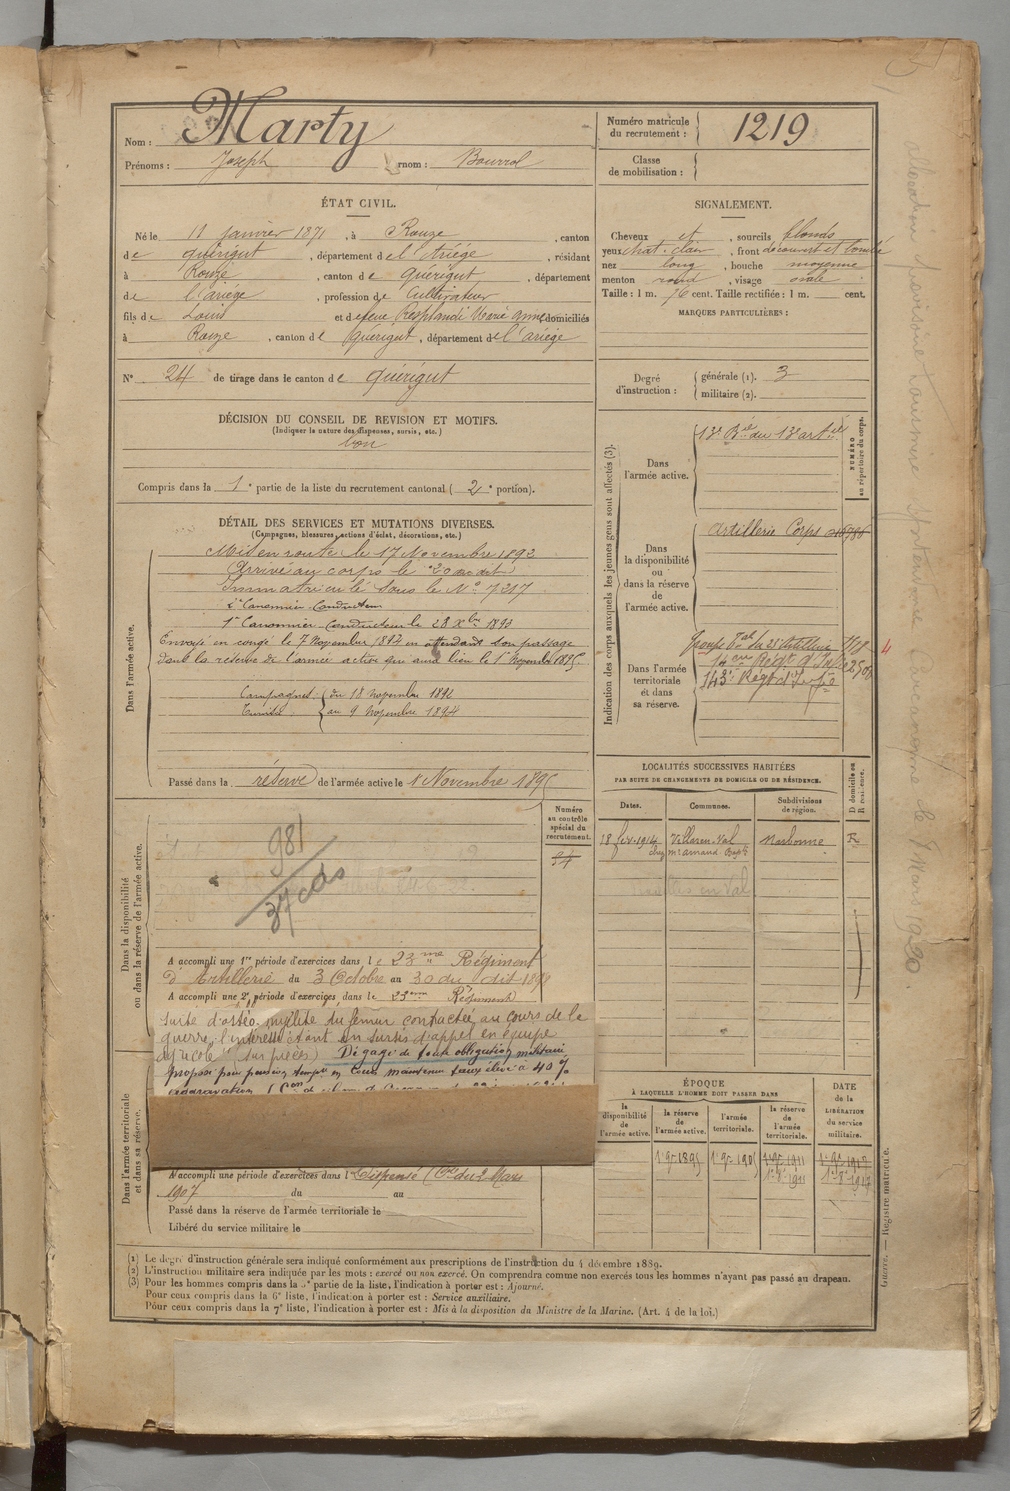 Nom : Marty
Prénoms : Joseph surnom : Bourrel
Numéro matricule du recrutement : 1219
Classe de mobilisation :
ÉTAT CIVIL.
Né le 11 janvier 1871, à Rouze, canton
de quérigut, département de l'Ariége, résidant
à Rouze, canton de quérigut, département
de l'ariège, profession de Cultivateur
fils de Louis et de feue Resplandi Marie Anne domiciliés
à Rouze, canton de quérigut, département de l'ariége
N° 24 de tirage dans le canton de quérigut
SIGNALEMENT.
Cheveux et, sourcils blonds
yeux chat. clair, front découvert et bombé
nez long, bouche moyenne
menton rond, visage ovale
Taille : 1 m. 76 cent. Taille rectifiée : 1 m. cent.
MARQUES PARTICULIÈRES :
Degré d'instruction :
générale (1). 3
militaire (2).
DÉCISION DU CONSEIL DE REVISION ET MOTIFS.
(Indiquer la nature des dispenses, sursis, etc.)
bon
Compris dans la 1e partie de la liste du recrutement cantonal ( 2e portion).
DÉTAIL DES SERVICES ET MUTATIONS DIVERSES.
(Campagnes, blessures, actions d'éclat, décorations, etc.)
Dans l'armée active.
Mis en route le 17 Novembre 1892
Arrivé au corps le 20 du dit
Immatriculé sous le N° 7217
2e Canonnier Conducteur
1er Canonnier Conducteur le 28 Xbre 1893
Envoyé en congé le 7 Novembre 1894 en attendant son passage
dans la réserve de l'armée active qui aura lieu le 1er Novembre 1895.
Campagnes : du 18 novembre 1892
Tunisie au 9 Novembre 1894
Passé dans la réserve de l'armée active le 1 Novembre 1895
Indication des corps auxquels les jeunes gens sont affectés (3).
NUMÉRO au répertoire du corps.
Dans l'armée active.
13e Bie du 13e artie
Dans la disponibilité ou dans la réserve de l'armée active.
Artillerie Corps
Dans l'armée territoriale et dans sa réserve.
Groupe Tal du 23e Artillerie
143e Régt d'Infie
LOCALITÉS SUCCESSIVES HABITÉES
PAR SUITE DE CHANGEMENTS DE DOMICILE OU DE RÉSIDENCE.
Dates. Communes. Subdivisions de région. D domicile ou R résidence.
18 fév. 1914 Villaren-Val Narbonne R
chez Mr Arnaud Bapte
Dans la disponibilité ou dans la réserve de l'armée active.
Numéro au contrôle spécial du recrutement.
94
981
37 cds
A accompli une 1re période d'exercices dans le 23me Régiment
d'Artillerie du 3 Octobre au 30 du dit 1898
A accompli une 2e période d'exercices dans le 23eme Régiment
suite d'ostéo-myélite du fémur contractée au cours de la
guerre, l'intéressé étant en sursis d'appel en équipe
agricole (sur pièces) Dégagé de toute obligation militaire
proposé pour pension temp. en Cours maintenu taux élevé à 40 %
Dans l'armée territoriale et dans sa réserve.
A accompli une période d'exercices dans l Dispensé (Cre du 2 Mars
1907 du au
Passé dans la réserve de l'armée territoriale le
Libéré du service militaire le
ÉPOQUE
À LAQUELLE L'HOMME DOIT PASSER DANS
la disponibilité de l'armée active. la réserve de l'armée active. l'armée territoriale. la réserve de l'armée territoriale. DATE de la LIBÉRATION du service militaire.
1er 9bre 1895 1er 9bre 1905 1er 9bre 1911 1er 9bre 1917
1er 8bre 1911 1er 8bre 1917
(1) Le degré d'instruction générale sera indiqué conformément aux prescriptions de l'instruction du 4 décembre 1889.
(2) L'instruction militaire sera indiquée par les mots : exercé ou non exercé. On comprendra comme non exercés tous les hommes n'ayant pas passé au drapeau.
(3) Pour les hommes compris dans la 5e partie de la liste, l'indication à porter est : Ajourné.
Pour ceux compris dans la 6e liste, l'indication à porter est : Service auxiliaire.
Pour ceux compris dans la 7e liste, l'indication à porter est : Mis à la disposition du Ministre de la Marine. (Art. 4 de la loi.)
Guerre. — Registre matricule.
Carcassonne le 7 Mars 1920